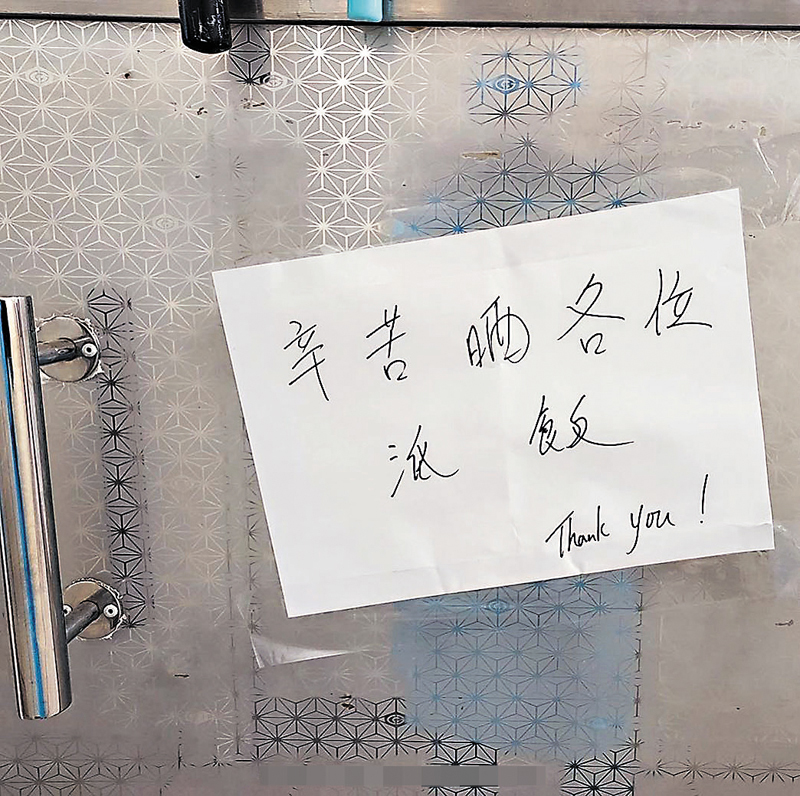 辛苦晒各位
派飯
Thank you!